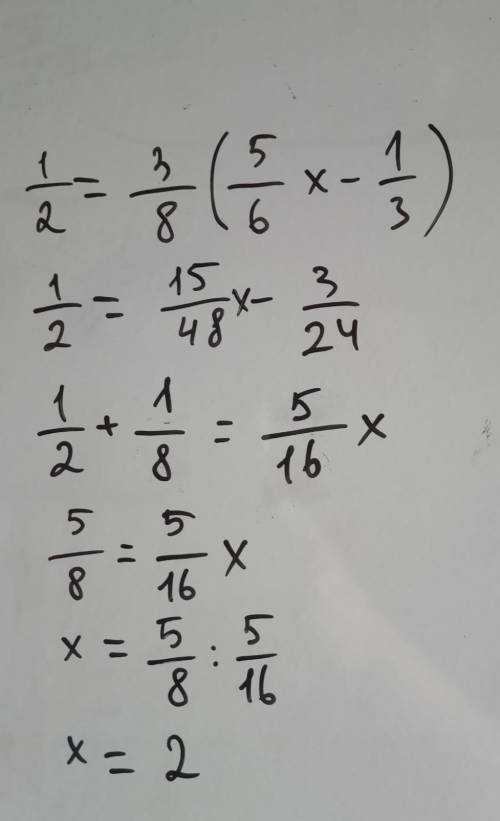 1/2 = 3/8 (5/6 x - 1/3)
1/2 = 15/48 x - 3/24
1/2 + 1/8 = 5/16 x
5/8 = 5/16 x
x = 5/8 : 5/16
x = 2